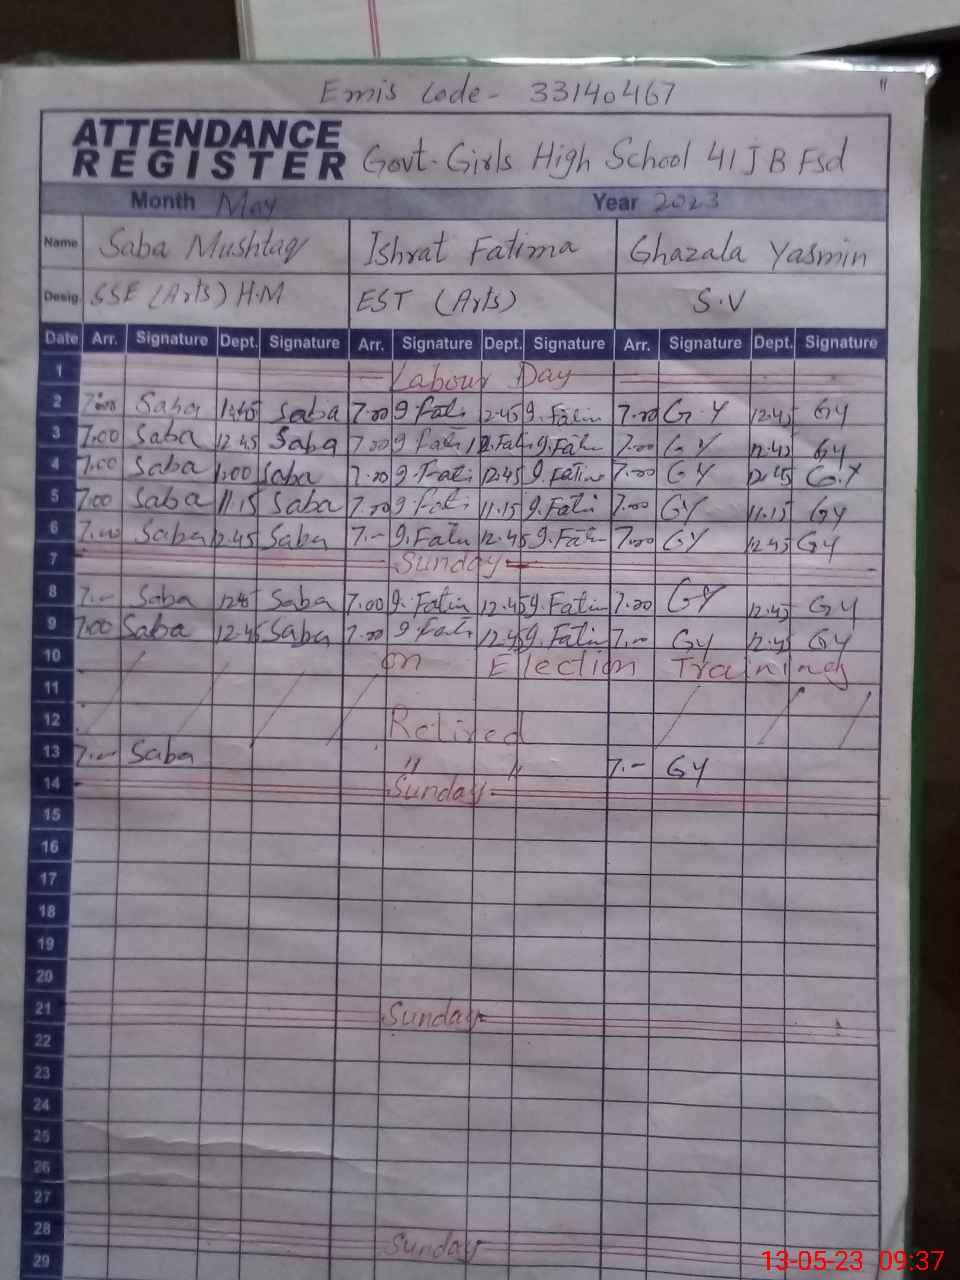 Emis Code - 33140467
ATTENDANCE
REGISTER Govt. Girls High School 41 J B Fsd
Month May Year 2023
Name Saba Mushtaq Ishrat Fatima Ghazala Yasmin
Desig. SSE (Arts) H.M EST (Arts) S.V
Date Arr. Signature Dept. Signature Arr. Signature Dept. Signature Arr. Signature Dept. Signature
1 Labour Day
2 7.00 Saba Saba 7.00 12.45 7.00 G.Y 12.45 GY
3 7.00 Saba 12.45 Saba 7.00 7.00 GY 12.45 GY
4 7.00 Saba Saba 7.00 12.45 7.00 GY 12.45 G.Y
5 7.00 Saba 11.15 Saba 7.00 11.15 7.00 GY 11.15 GY
6 7.00 Saba 12.45 Saba 7.- 12.45 7.00 GY 12.45 GY
7 Sunday
8 7.- Saba Saba 7.00 12.45 7.00 GY 12.45 GY
9 7.00 Saba 12.45 Saba 7.00 12.45 7.- GY 12.45 GY
10 on Election Training
11
12 Retired
13 7.- Saba " " 7.- GY
14 Sunday
15
16
17
18
19
20
21 Sunday
22
23
24
25
26
27
28 Sunday
29
13-05-23 09:37